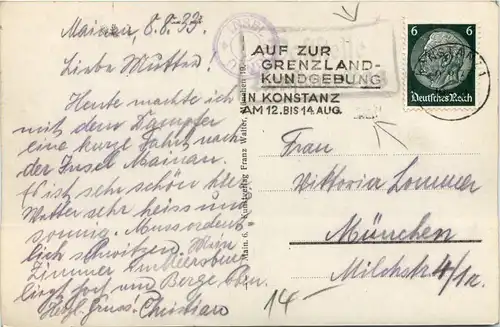 Mainau, 8.8.33.
Liebe Mutter!
Heute machte ich
mit dem Dampfer
eine kurze Fahrt nach
der Insel Mainau.
Es ist sehr schön hier
Wetter sehr heiss und
sonnig. Muss ordent
lich schwitzen. Mein
Zimmer
liegt dort am Berge oben.
Herzl. Gruss! Christian
INSEL
AUF ZUR
GRENZLAND-
KUNDGEBUNG
IN KONSTANZ
AM 12. BIS 14 AUG.
6 6
Deutsches Reich
KONSTANZ 1
Main. 6. Kunstverlag Franz Walter,
Frau
Viktoria Lommer
München
Milchstr 4/1r.
14